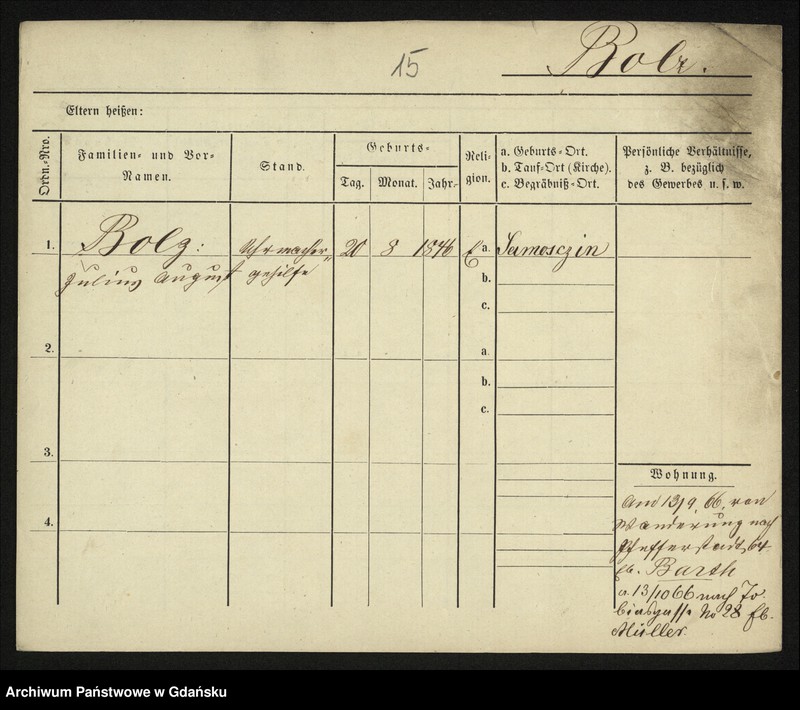 15
Bolz.
Eltern heißen:
Ordn.-Nro.
Familien- und Vor-
Namen.
Stand.
Geburts-
Tag.
Monat.
Jahr.
Reli-
gion.
a. Geburts-Ort.
b. Tauf-Ort (Kirche).
c. Begräbniß-Ort.
Persönliche Verhältnisse,
z. B. bezüglich
des Gewerbes u. s. w.
1.
Bolz:
Julius August
Uhrmacher-
gehilfe
20
8
1846
a.
Samosczin
b.
c.
2.
a.
b.
c.
3.
4.
Wohnung.
13/9. 66. von
Wanderung nach
Pfefferstadt 64
Barth
a. 13/10 66 nach To-
biasgasse No 28
Müller
Archiwum Państwowe w Gdańsku